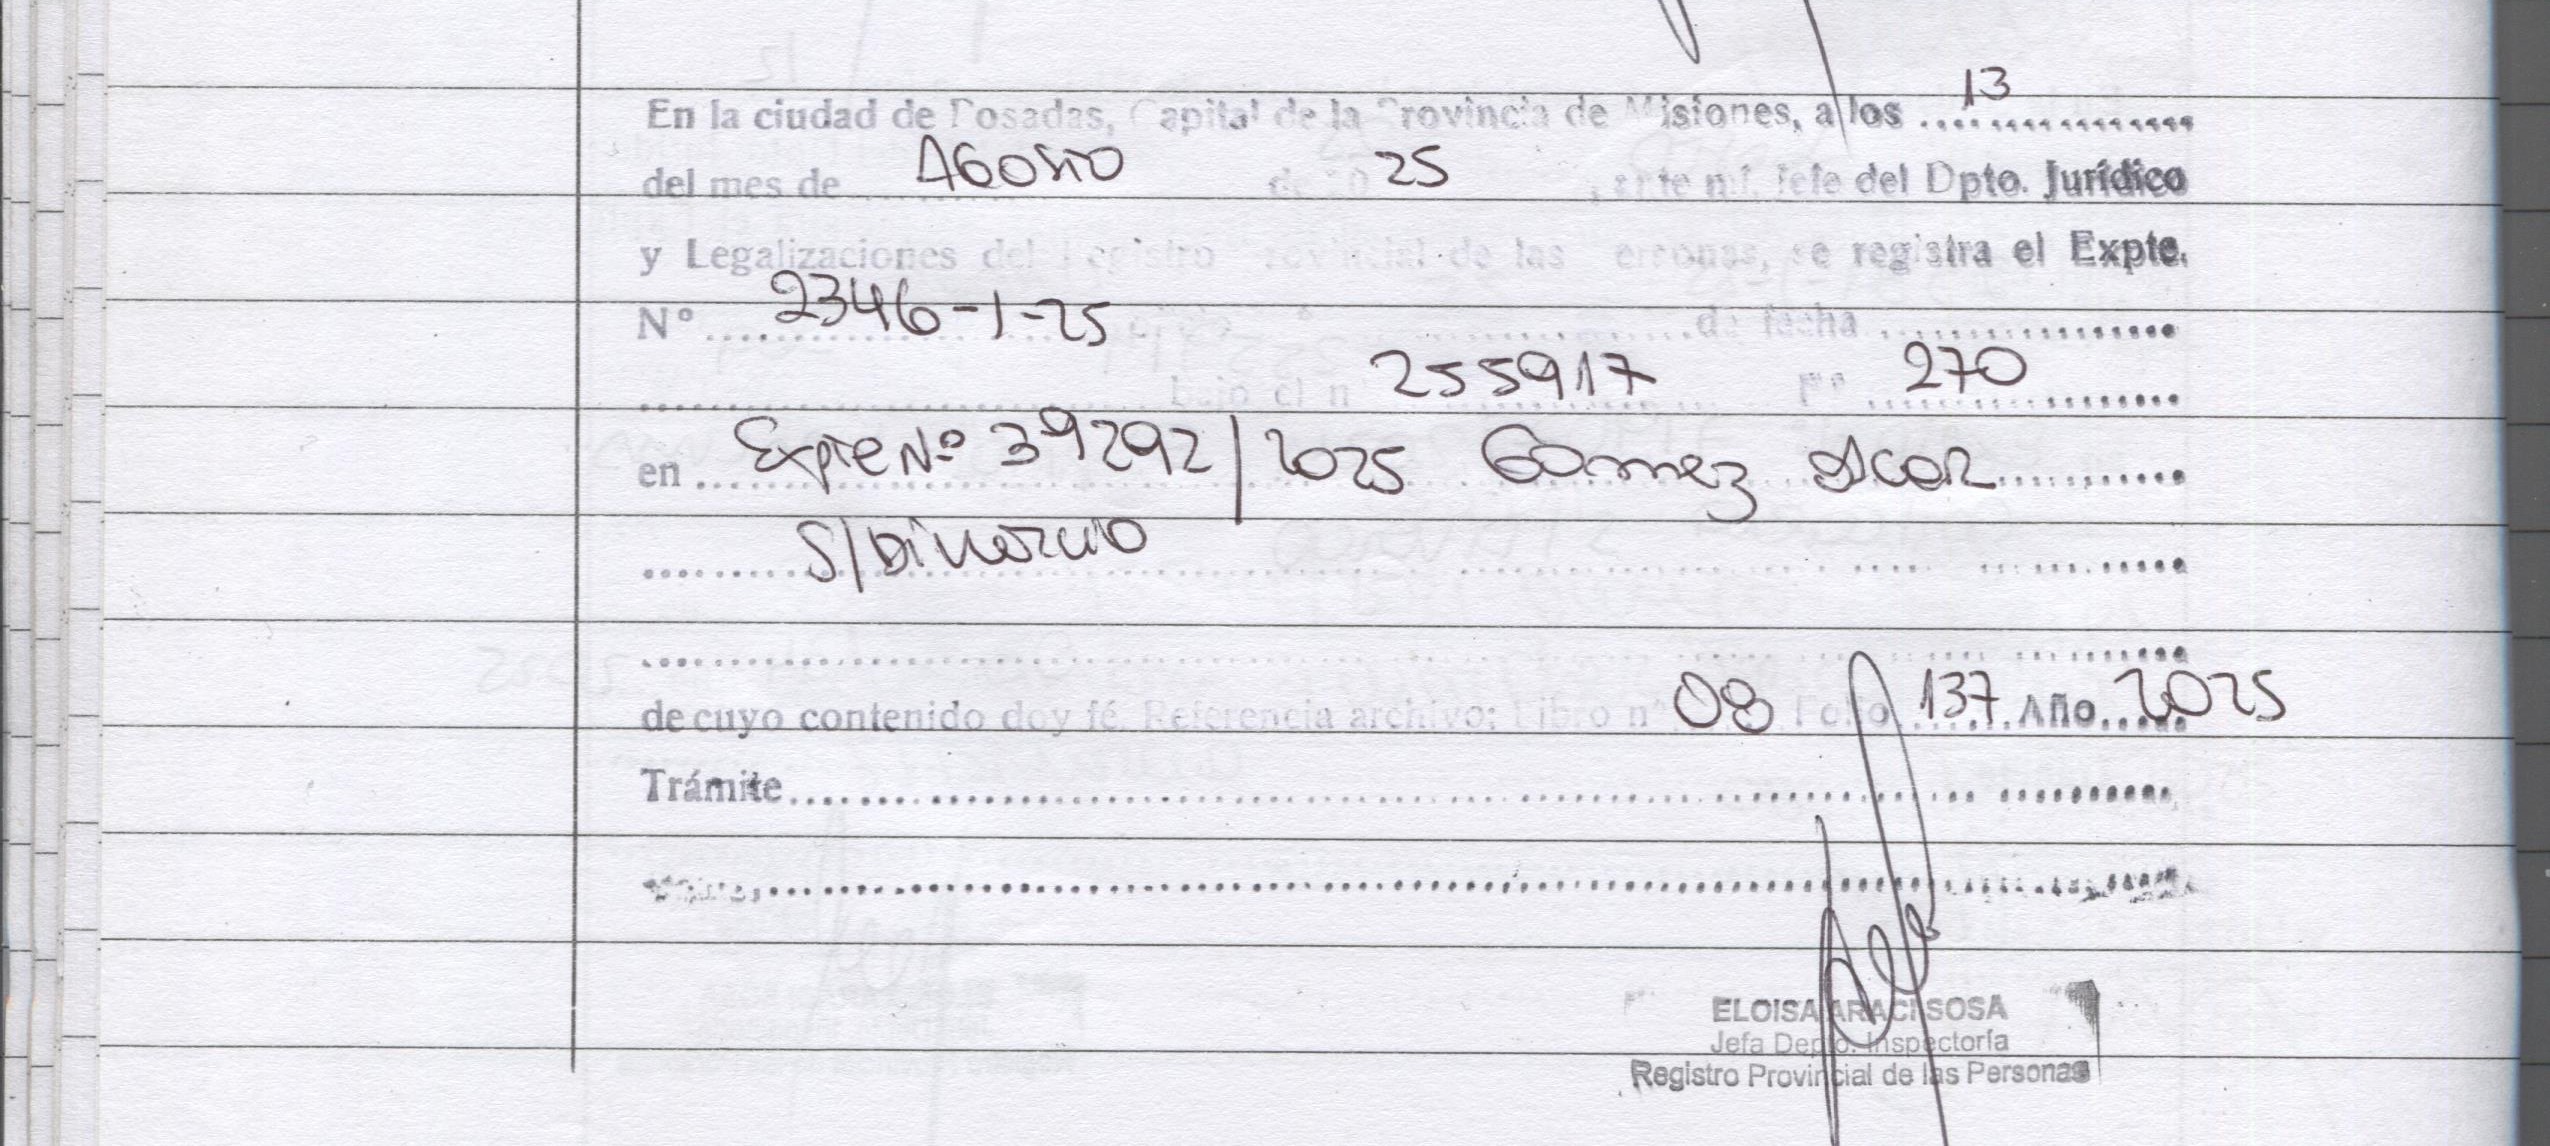 En la ciudad de Posadas, Capital de la Provincia de Misiones, a los 13
del mes de AGOSTO de 20 25, ante mí, Jefe del Dpto. Jurídico
y Legalizaciones del Registro Provincial de las Personas, se registra el Expte.
Nº 2346-1-25 de fecha
bajo el nº 255917 Fº 270
en Expte Nº 39292/2025 Gomez
S/Divorcio
de cuyo contenido doy fé. Referencia archivo: Libro nº 08 Folio 137 Año 2025
Trámite
ELOISA ARACI SOSA
Jefa Depto. Inspectoría
Registro Provincial de las Personas